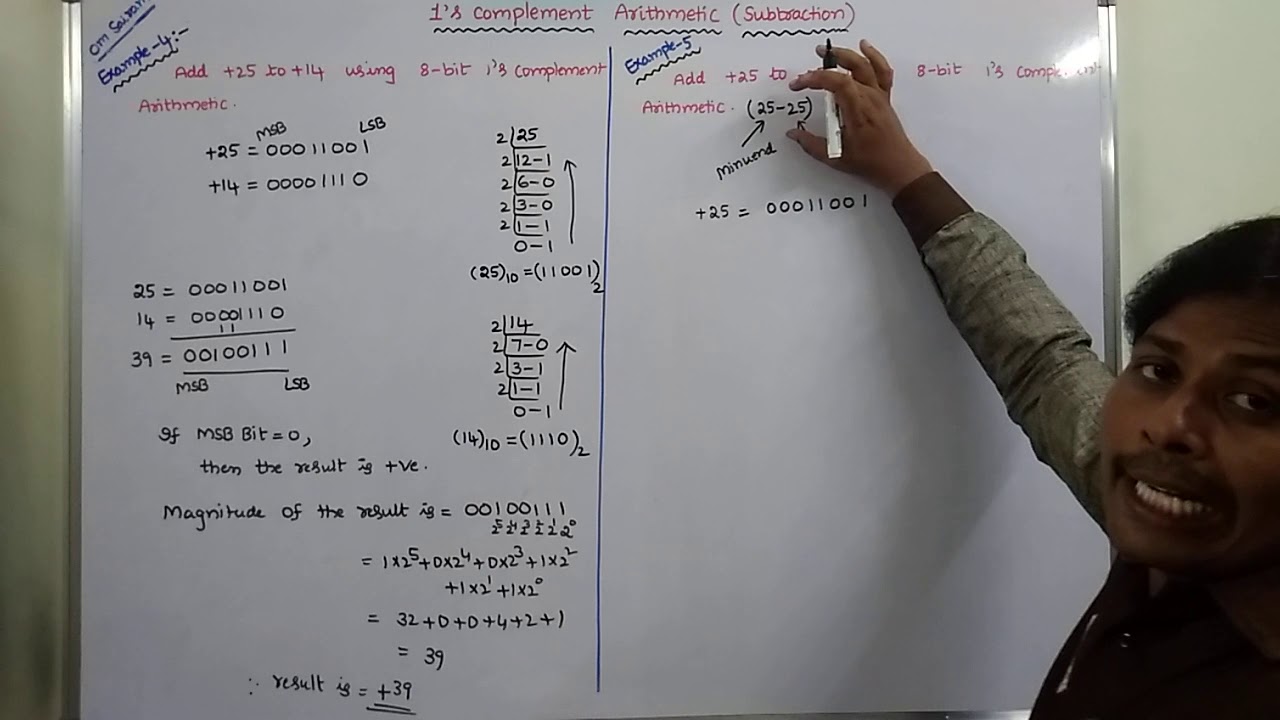 1's Complement Arithmetic (Subtraction)
Om Sairam
Example-4:-
Add +25 to +14 using 8-bit 1's complement
Arithmetic.
MSB LSB
+25 = 00011001
+14 = 00001110
2 25
2 12-1
2 6-0
2 3-0
2 1-1
0-1
(25)10 = (11001)2
25 = 00011001
14 = 00001110
1 1
39 = 00100111
MSB LSB
2 14
2 7-0
2 3-1
2 1-1
0-1
(14)10 = (1110)2
If MSB Bit = 0,
then the result is +ve.
Magnitude of the result is = 00100111
2^5 2^4 2^3 2^2 2^1 2^0
= 1x2^5+0x2^4+0x2^3+1x2^2
+1x2^1+1x2^0
= 32+0+0+4+2+1
= 39
∴ result is = +39
Example-5
Add +25 to 8-bit 1's
Arithmetic. (25-25)
Minuend
+25 = 00011001